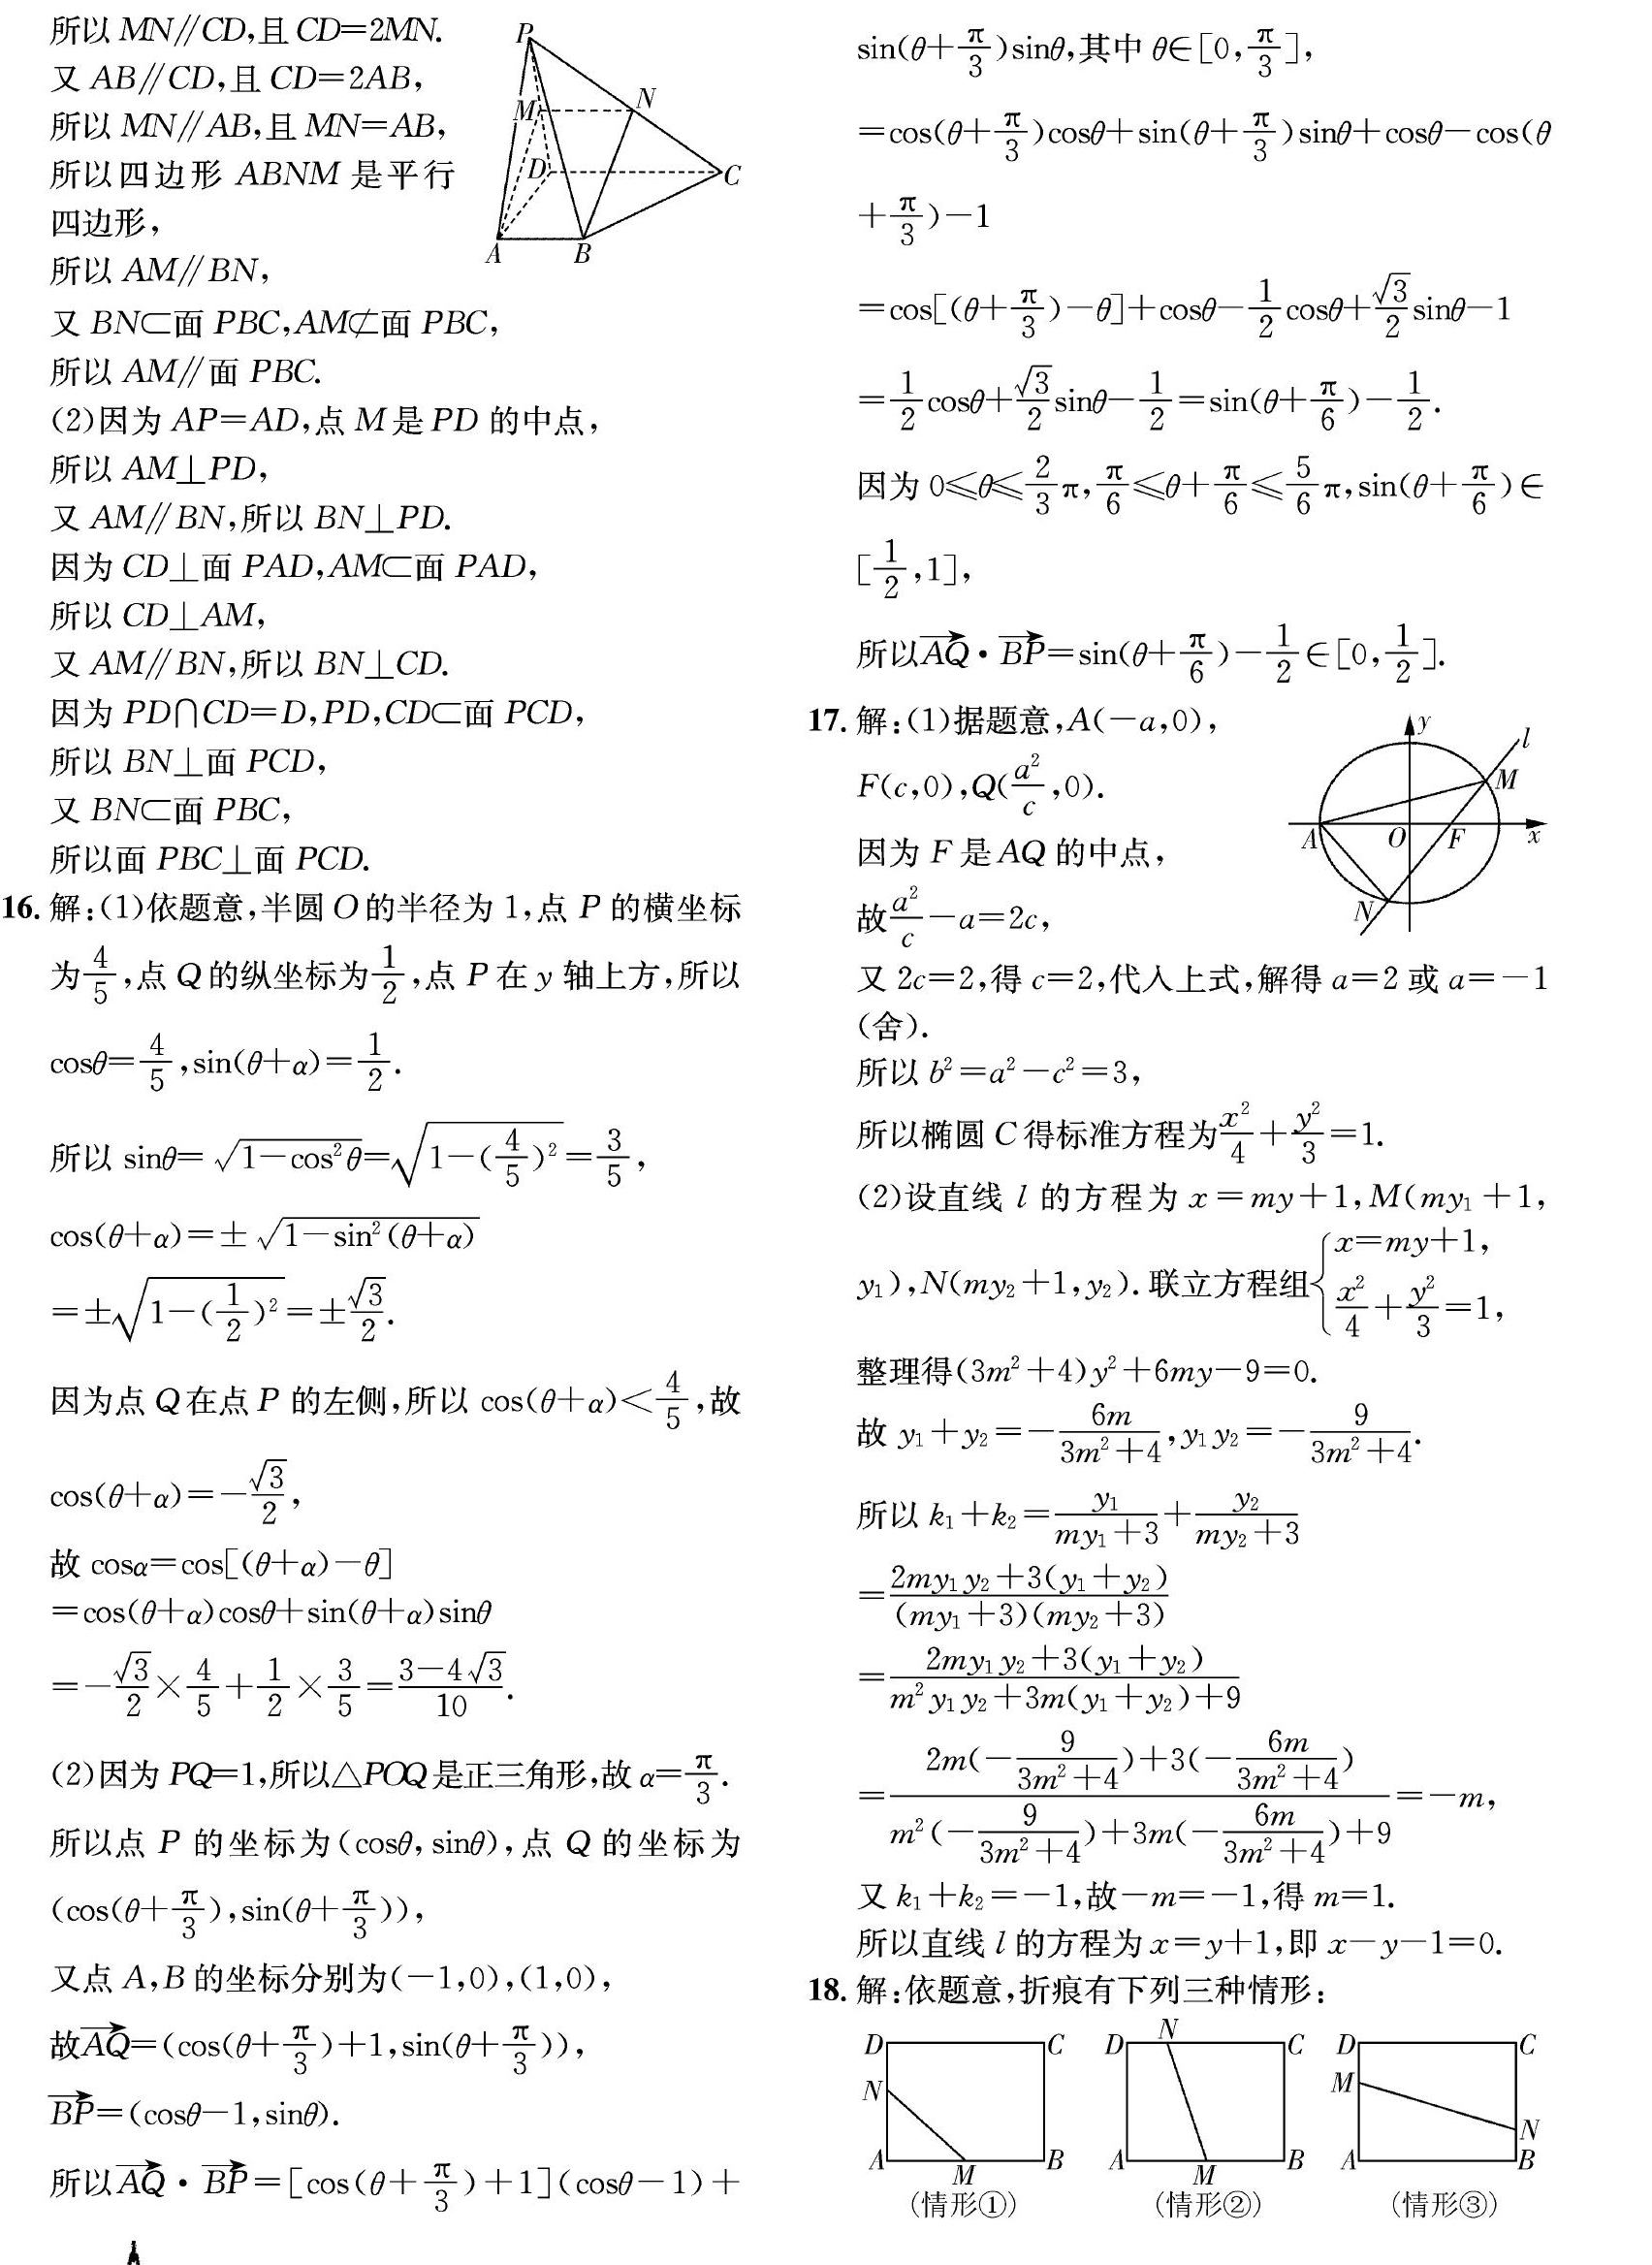 所以 MN∥CD,且 CD=2MN.
又 AB∥CD,且 CD=2AB,
所以 MN∥AB,且 MN=AB,
所以四边形 ABNM 是平行
四边形,
所以 AM∥BN,
又 BN⊂面 PBC,AM⊄面 PBC,
所以 AM∥面 PBC.
P
M
N
D
C
A
B
(2)因为 AP=AD,点 M 是 PD 的中点,
所以 AM⊥PD,
又 AM∥BN,所以 BN⊥PD.
因为 CD⊥面 PAD,AM⊂面 PAD,
所以 CD⊥AM,
又 AM∥BN,所以 BN⊥CD.
因为 PD∩CD=D,PD,CD⊂面 PCD,
所以 BN⊥面 PCD,
又 BN⊂面 PBC,
所以面 PBC⊥面 PCD.
16. 解:(1)依题意,半圆 O 的半径为 1,点 P 的横坐标
为4/5,点 Q 的纵坐标为1/2,点 P 在 y 轴上方,所以
cosθ=4/5,sin(θ+α)=1/2.
所以 sinθ=√(1-cos²θ)=√(1-(4/5)²)=3/5,
cos(θ+α)=±√(1-sin²(θ+α))
=±√(1-(1/2)²)=±√3/2.
因为点 Q 在点 P 的左侧,所以 cos(θ+α)<4/5,故
cos(θ+α)=-√3/2,
故 cosα=cos[(θ+α)-θ]
=cos(θ+α)cosθ+sin(θ+α)sinθ
=-√3/2×4/5+1/2×3/5=(3-4√3)/10.
(2)因为 PQ=1,所以△POQ 是正三角形,故 α=π/3.
所以点 P 的坐标为(cosθ,sinθ),点 Q 的坐标为
(cos(θ+π/3),sin(θ+π/3)),
又点 A,B 的坐标分别为(-1,0),(1,0),
故AQ→=(cos(θ+π/3)+1,sin(θ+π/3)),
BP→=(cosθ-1,sinθ).
所以AQ→·BP→=[cos(θ+π/3)+1](cosθ-1)+
sin(θ+π/3)sinθ,其中 θ∈[0,π/3],
=cos(θ+π/3)cosθ+sin(θ+π/3)sinθ+cosθ-cos(θ
+π/3)-1
=cos[(θ+π/3)-θ]+cosθ-1/2cosθ+√3/2sinθ-1
=1/2cosθ+√3/2sinθ-1/2=sin(θ+π/6)-1/2.
因为 0≤θ≤2/3π,π/6≤θ+π/6≤5/6π,sin(θ+π/6)∈
[1/2,1],
所以AQ→·BP→=sin(θ+π/6)-1/2∈[0,1/2].
17. 解:(1)据题意,A(-a,0),
F(c,0),Q(a²/c,0).
因为 F 是 AQ 的中点,
故a²/c-a=2c,
y
l
M
A
O
F
x
N
又 2c=2,得 c=2,代入上式,解得 a=2 或 a=-1
(舍).
所以 b²=a²-c²=3,
所以椭圆 C 得标准方程为x²/4+y²/3=1.
(2)设直线 l 的方程为 x=my+1,M(my₁+1,
y₁),N(my₂+1,y₂).联立方程组{x=my+1, x²/4+y²/3=1,
整理得(3m²+4)y²+6my-9=0.
故 y₁+y₂=-6m/(3m²+4),y₁y₂=-9/(3m²+4).
所以 k₁+k₂=y₁/(my₁+3)+y₂/(my₂+3)
=(2my₁y₂+3(y₁+y₂))/((my₁+3)(my₂+3))
=(2my₁y₂+3(y₁+y₂))/(m²y₁y₂+3m(y₁+y₂)+9)
=(2m(-9/(3m²+4))+3(-6m/(3m²+4)))/(m²(-9/(3m²+4))+3m(-6m/(3m²+4))+9)=-m,
又 k₁+k₂=-1,故-m=-1,得 m=1.
所以直线 l 的方程为 x=y+1,即 x-y-1=0.
18. 解:依题意,折痕有下列三种情形:
D C
N
A M B
(情形①)
N
D C
A M B
(情形②)
D C
M
N
A B
(情形③)